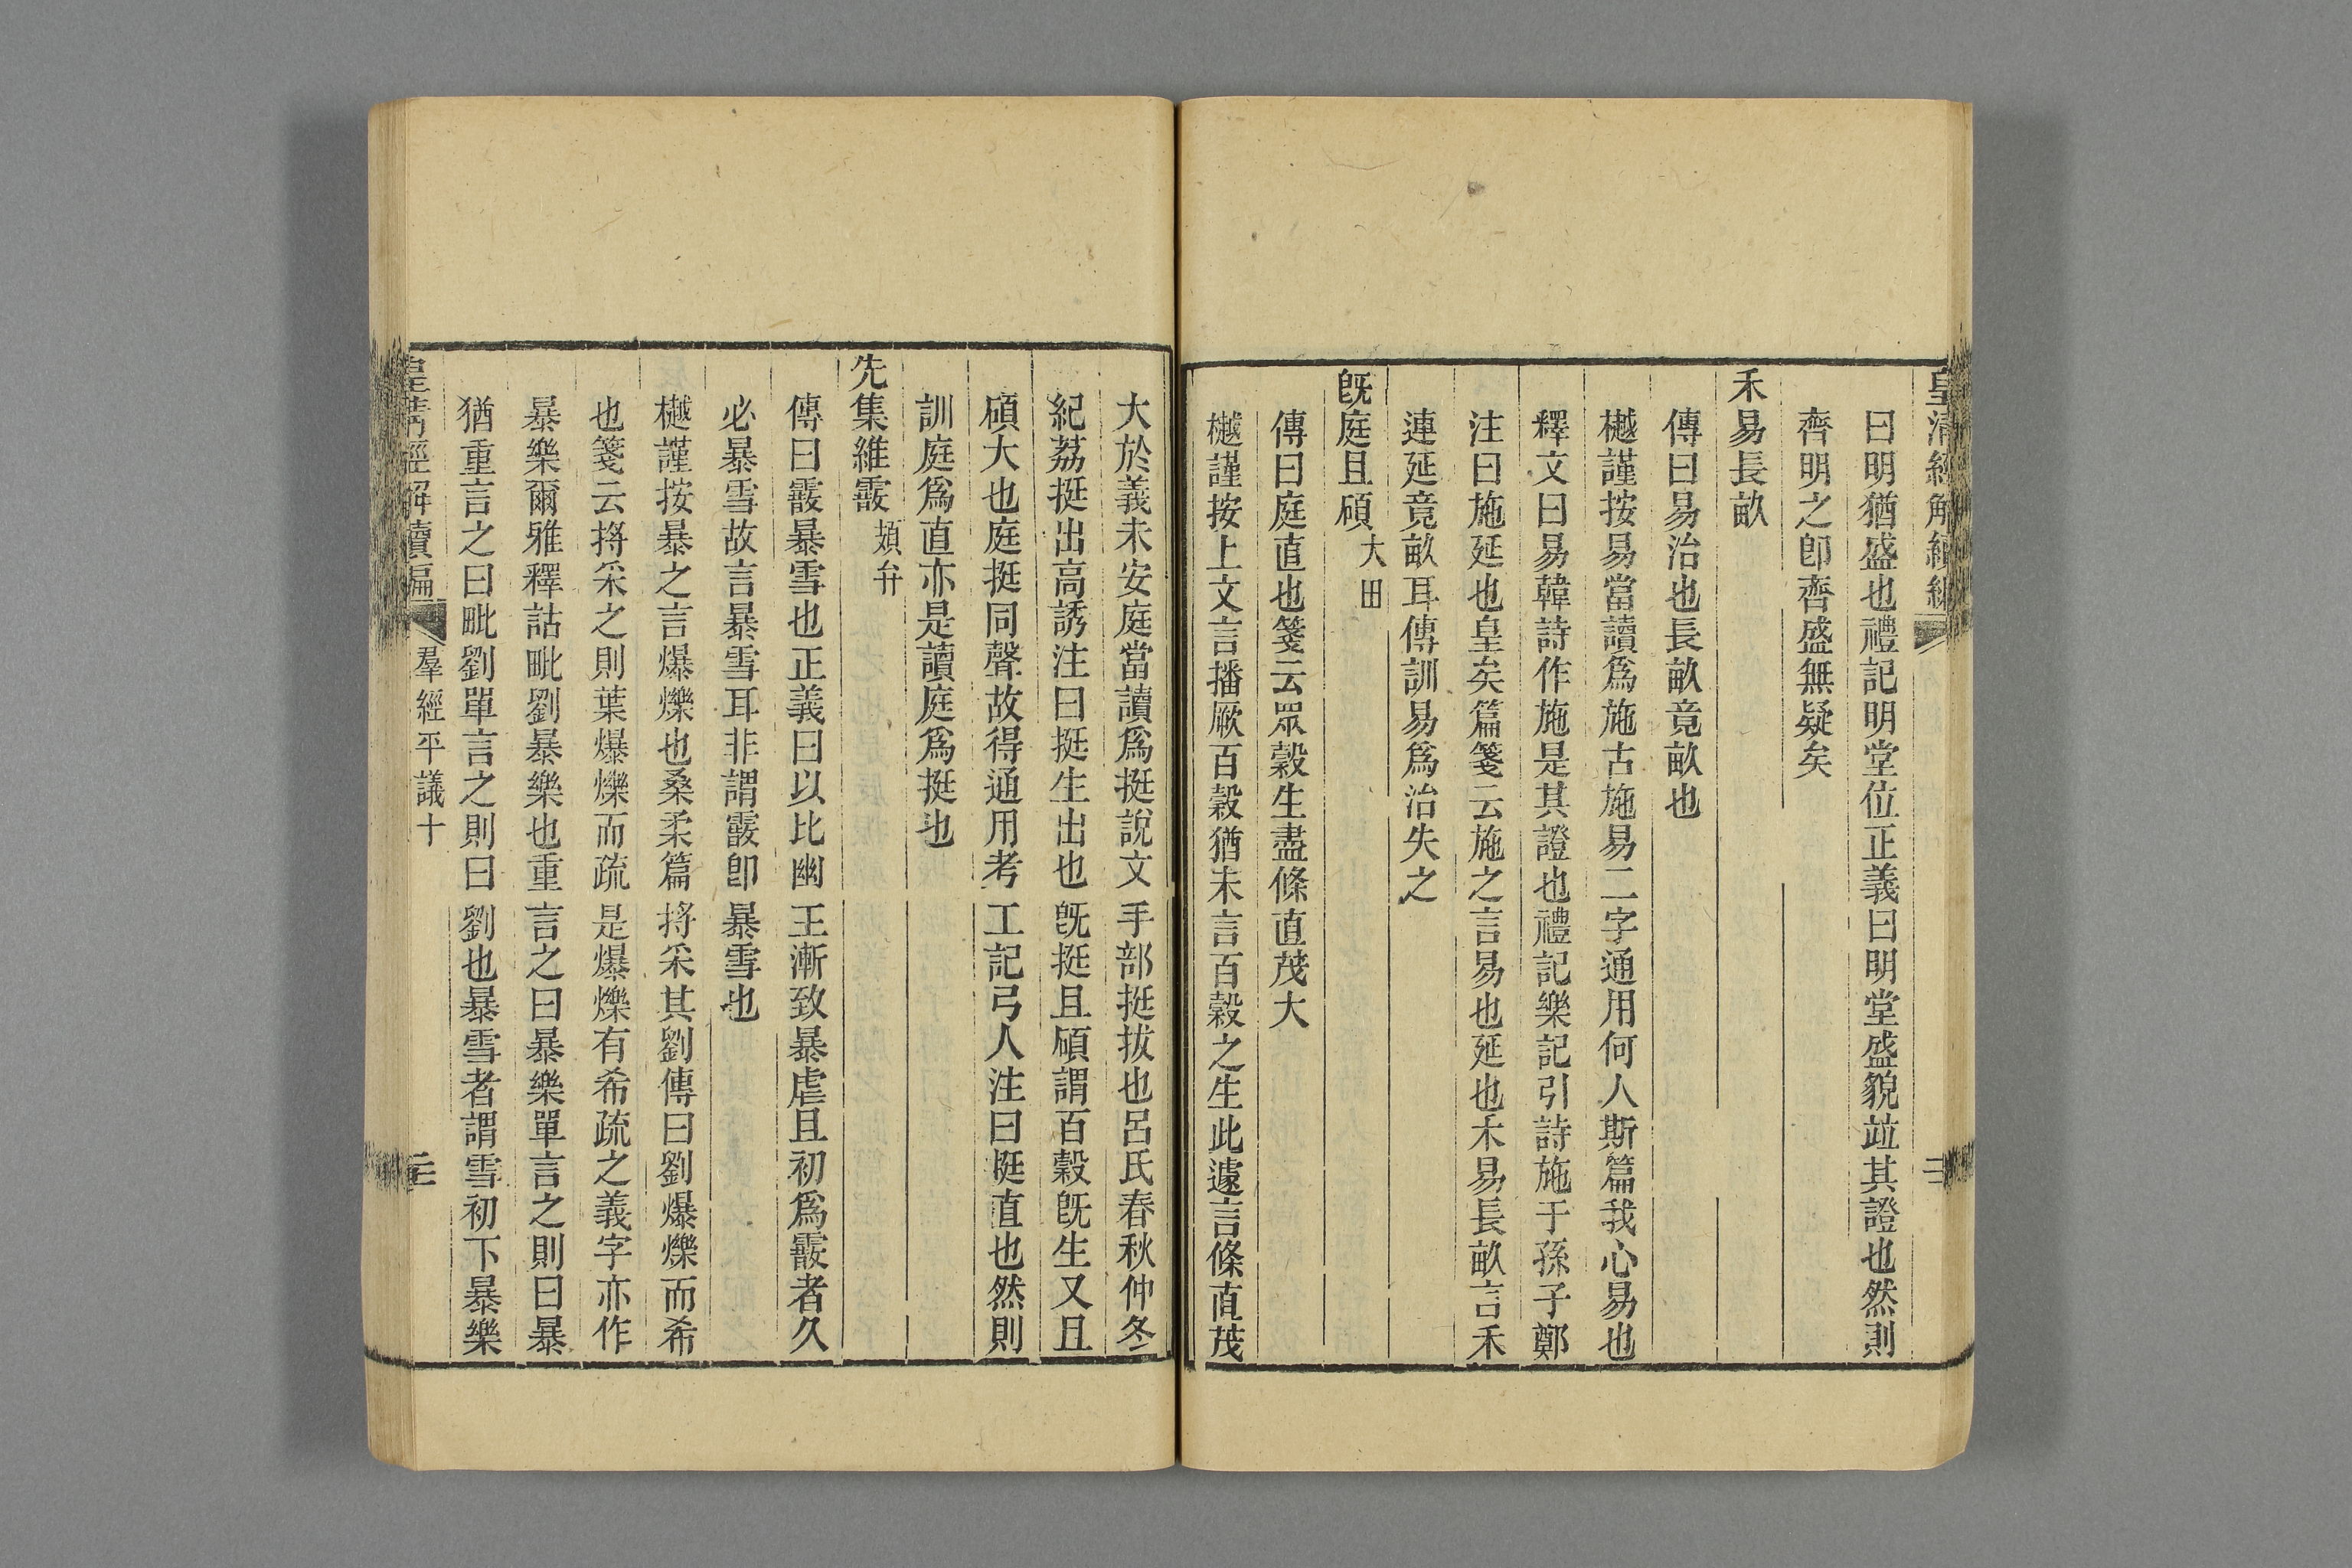 皇清經解續編
曰明猶盛也禮記明堂位正義曰明堂盛貌竝其證也然則
齊明之卽齊盛無疑矣
禾易長畝
傳曰易治也長畝竟畝也
樾謹按易當讀爲施古施易二字通用何人斯篇我心易也
釋文曰易韓詩作施是其證也禮記樂記引詩施于孫子鄭
注曰施延也皇矣篇箋云施之言易也延也禾易長畝言禾
連延竟畝耳傳訓易爲治失之
旣庭且碩大田
傳曰庭直也箋云眾穀生盡條直茂大
樾謹按上文言播厥百穀猶未言百穀之生此遽言條直茂
大於義未安庭當讀爲挺說文手部挺拔也呂氏春秋仲冬
紀荔挺出高誘注曰挺生出也旣挺且碩謂百穀旣生又且
碩大也庭挺同聲故得通用考工記弓人注曰挺直也然則
訓庭爲直亦是讀庭爲挺也
先集維霰頍弁
傳曰霰暴雪也正義曰以比幽王漸致暴虐且初爲霰者久
必暴雪故言暴雪耳非謂霰卽暴雪也
樾謹按暴之言爆爍也桑柔篇捋采其劉傳曰劉爆爍而希
也箋云捋采之則葉爆爍而疏是爆爍有希疏之義字亦作
暴樂爾雅釋詁毗劉暴樂也重言之曰暴樂單言之則曰暴
猶重言之曰毗劉單言之則曰劉也暴雪者謂雪初下暴樂
皇清經解續編 羣經平議十